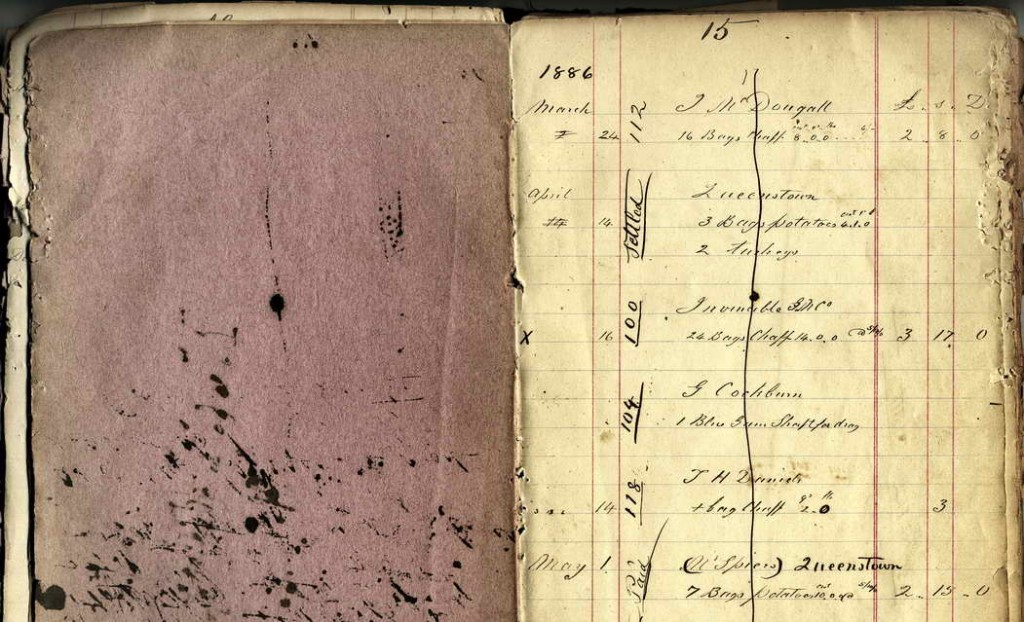 15
1886
March 112 J McDougall £ s D
24 16 Bags Chaff 8.0.0 2 8 0
April Settled Queenstown
14 3 Bags potatoes
2 Turkeys
100 Invincible G M Co
X 16 24 Bags Chaff 14.0.0 3 17 0
104 G Cockburn
1 Blue Gum Shaft for dray
118 T H Daniels
14 1 bag Chaff 2.0 3
May 1 Paid Queenstown
7 Bags potatoes 2 15 0